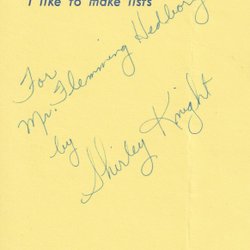 I like to make lists
For
Mr. Flemming Hedborg
by
Shirley Knight